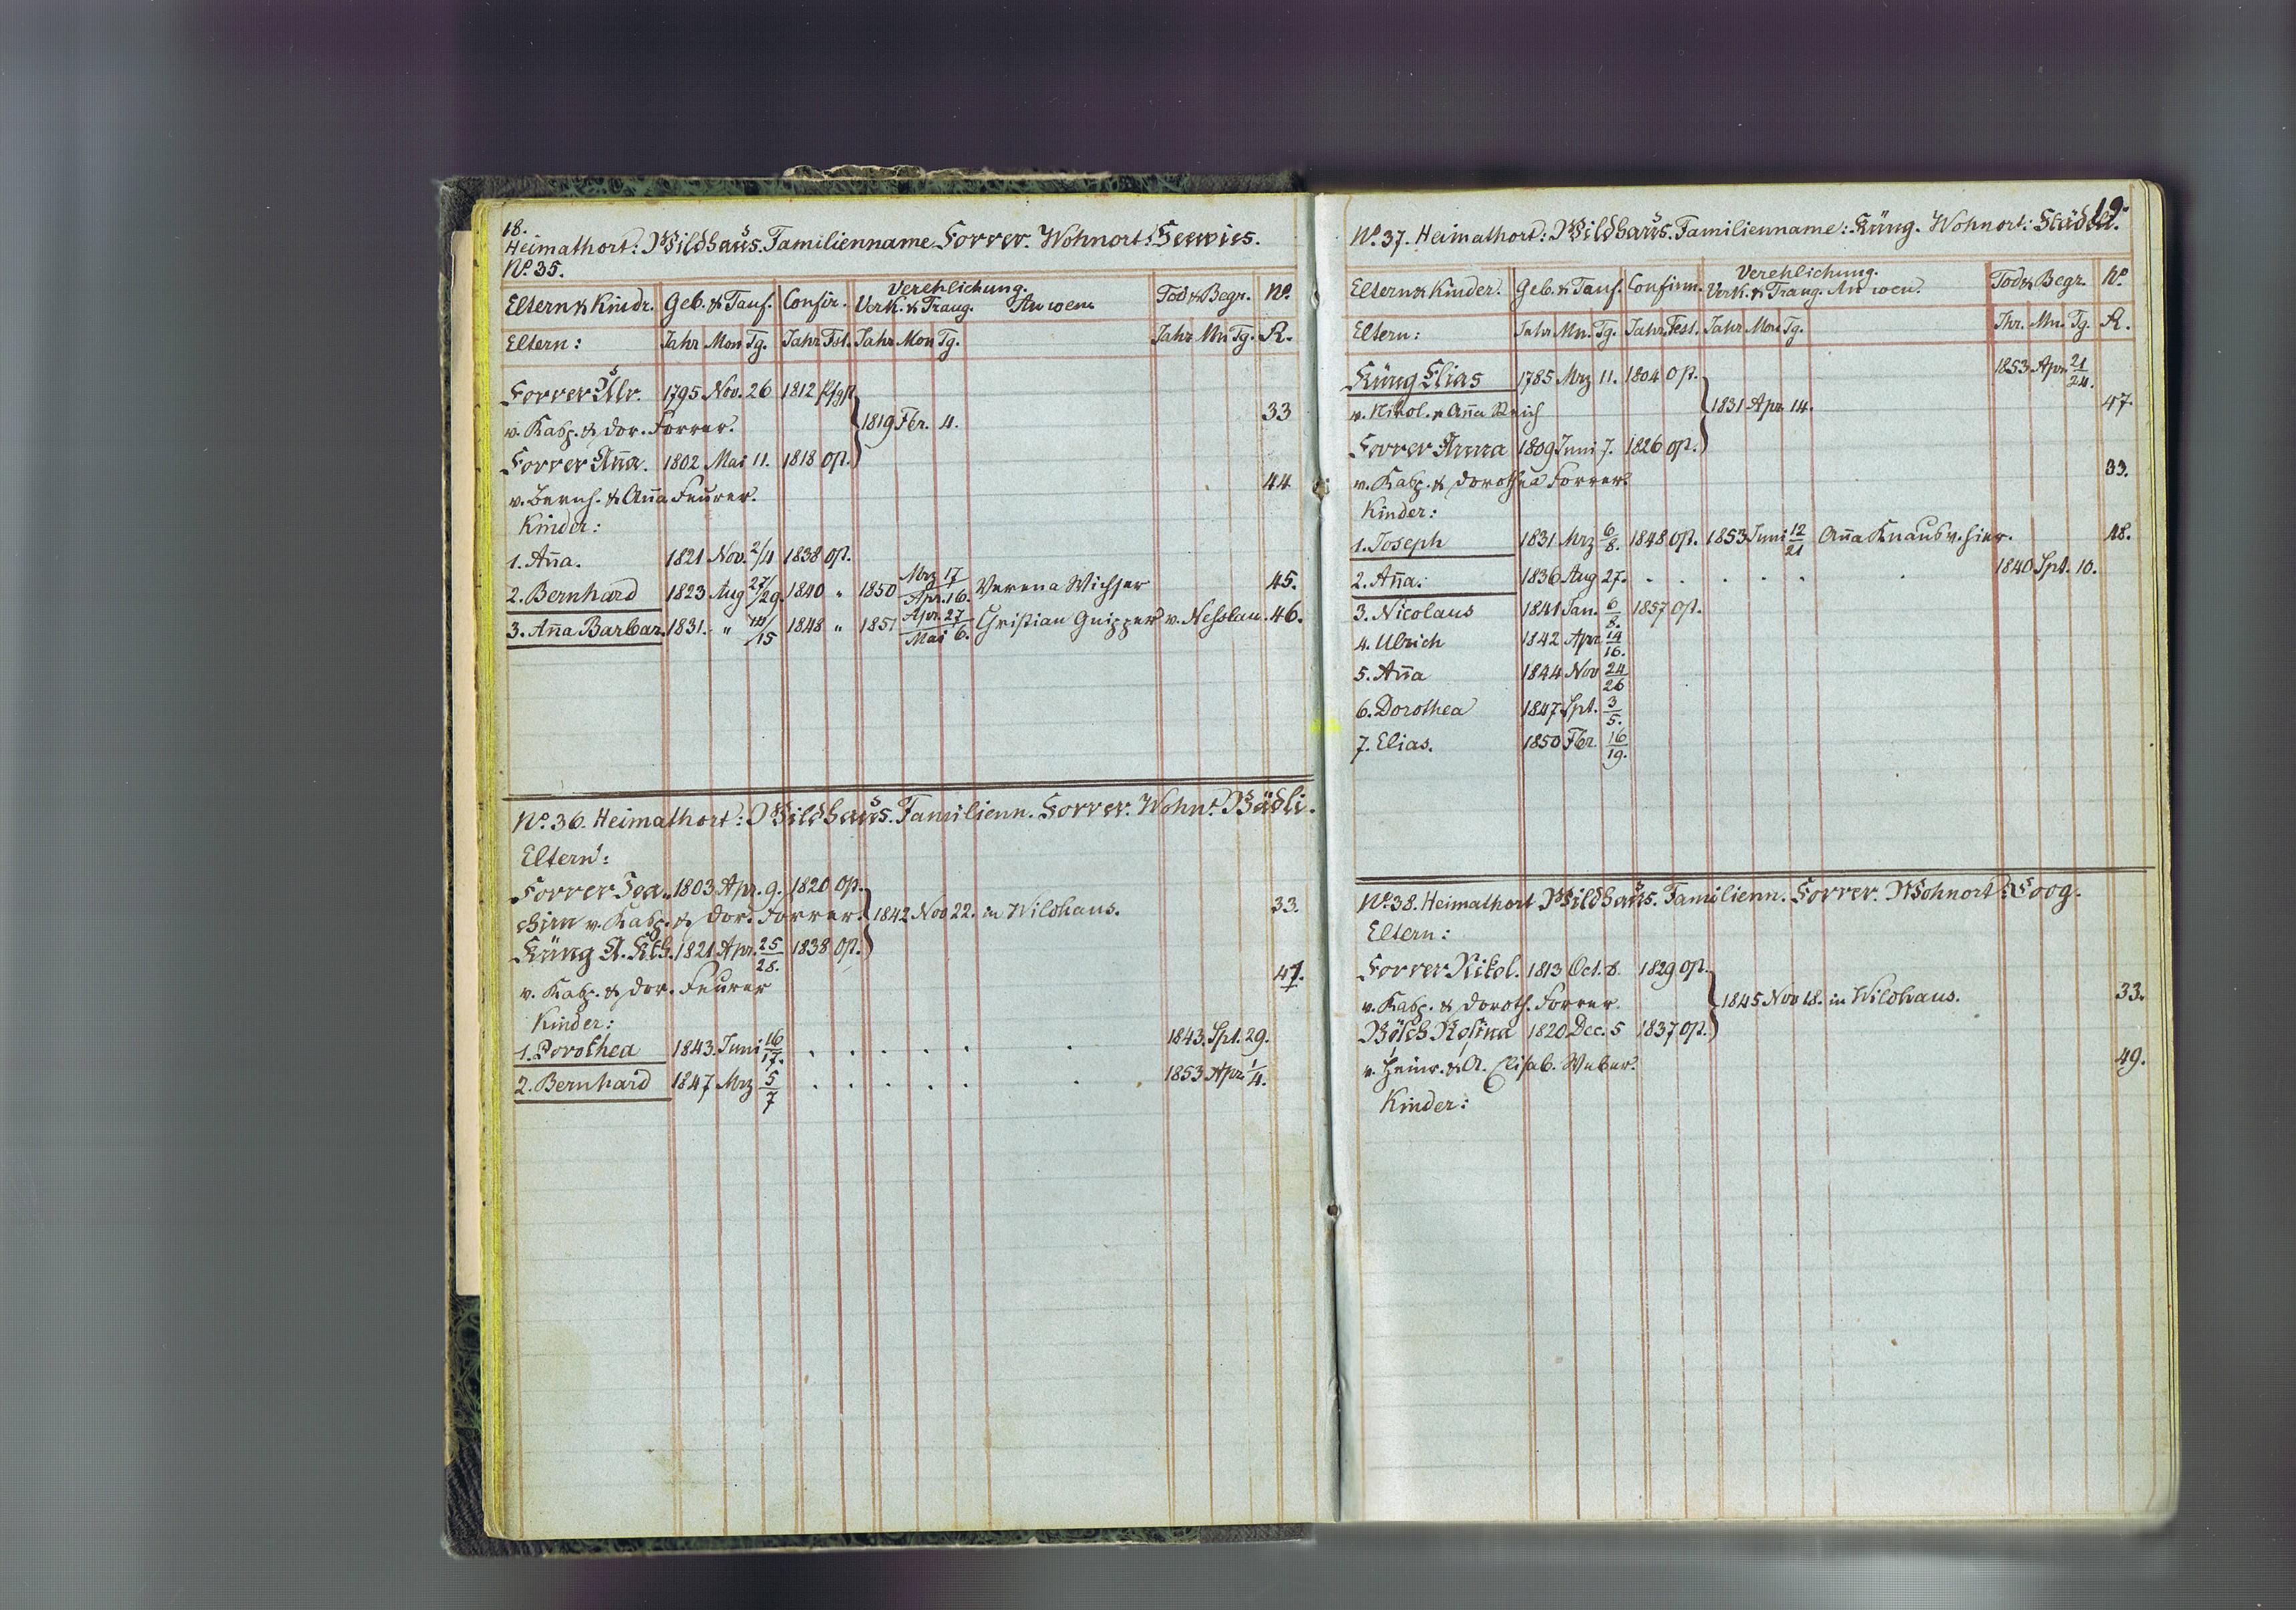 18.
Heimathort: Wildhaus. Familienname Forrer. Wohnort: Seewies.
No. 35.
Eltern & Kindr. Geb. & Tauf. Confir. Verehlichung. Tod & Begr. No.
Verk. & Traug. An wem
Eltern: Jahr Mon Tg. Jahr Fst. Jahr Mon Tg. Jahr Mn Tg. R.
Forrer Ulr. 1795 Nov. 26 1812 Pfgst
v. Kasp. & Dor. Forrer. 1819 Fbr. 4. 33
Forrer Aña. 1802 Mai 11. 1818 Op.
v. Bernh. & Aña Feurer. 44
Kinder:
1. Aña. 1821 Nov. 2/4 1838 Op.
2. Bernhard 1823 Aug 27/29. 1840 " 1850 Mrz 17/Apr. 16. Verena Wichser 45.
3. Aña Barbar. 1831. " 14/15 1848 " 1851 Apr. 27/Mai 6. Christian Gnipper v. Nesslau. 46.
No. 36. Heimathort: Wildhaus. Familienn. Forrer. Wohnt. Bädli.
Eltern:
Forrer Joa- 1803 Apr. 9. 1820 Op.
chim v. Kasp. & Dor. Forrer. 1842 Nov 22. in Wildhaus. 33.
Küng A. Kth. 1821 Apr. 25/28. 1838 Op.
v. Kasp. & Dor. Feurer 47.
Kinder:
1. Dorothea 1843. Juni 16/17. . . . . . . 1843. Spt. 29.
2. Bernhard 1847 Mrz 5/7 . . . . . . 1853 Apr. 1/4.
19.
No. 37. Heimathort: Wildhaus. Familienname: Küng. Wohnort: Städeli.
Eltern & Kinder. Geb. & Tauf. Confirm. Verehlichung. Tod & Begr. No
Verk. & Traug. An wen.
Eltern: Jahr Mn. Tg. Jahr Fest. Jahr Mon Tg. Jhr. Mn. Tg. R.
Küng Elias 1785 Mrz 11. 1804 Op. 1853 Apr. 21/24.
v. Nikol. & Aña Reich 1831 Apr. 14. 47.
Forrer Anna 1809 Juni 7. 1826 Op.
v. Kasp. & Dorothea Forrer. 33.
Kinder:
1. Joseph 1831 Mrz 6/8. 1848 Op. 1853 Juni 12/21 Aña Knaus v. hier. 48.
2. Aña. 1836 Aug 27. . . . . . . 1840 Spt. 10.
3. Nicolaus 1841 Jan. 6/8. 1857 Op.
4. Ulrich 1842 Apr 14/16.
5. Aña 1844 Nov 24/26
6. Dorothea 1847 Spt. 3/5.
7. Elias. 1850 Fbr. 16/19.
No. 38. Heimathort Wildhaus. Familienn. Forrer. Wohnort: Loog.
Eltern:
Forrer Nikol. 1813 Oct. 8. 1829 Op.
v. Kasp. & Doroth. Forrer. 1845 Nov 18. in Wildhaus. 33.
Bölsch Rosina 1820 Dec. 5 1837 Op.
v. Heinr. & A. Elisab. Weber. 49.
Kinder: